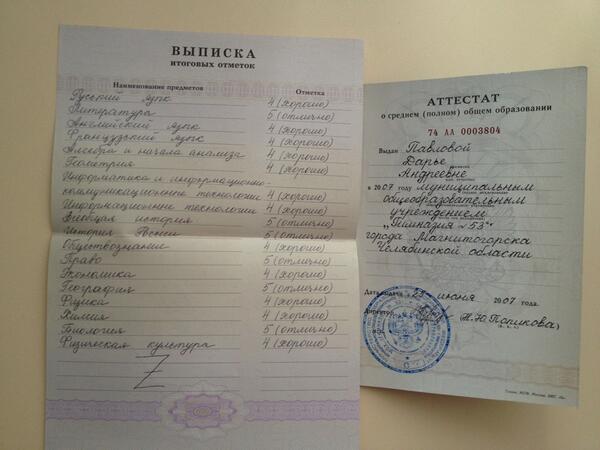 ВЫПИСКА
итоговых отметок
Наименование предметов Отметка
Русский язык 4 (хорошо)
Литература 5 (отлично)
Английский язык 4 (хорошо)
Французский язык 4 (хорошо)
Алгебра и начала анализа 4 (хорошо)
Геометрия 4 (хорошо)
Информатика и информационно-
коммуникационные технологии 4 (хорошо)
Информационные технологии 4 (хорошо)
Всеобщая история 5 (отлично)
История России 5 (отлично)
Обществознание 4 (хорошо)
Право 5 (отлично)
Экономика 4 (хорошо)
География 5 (отлично)
Физика 4 (хорошо)
Химия 4 (хорошо)
Биология 5 (отлично)
Физическая культура 4 (хорошо)
Z
АТТЕСТАТ
о среднем (полном) общем образовании
74 АА 0003804
Выдан Павловой
Дарье
Андреевне
в 2007 году муниципальным
общеобразовательным
учреждением
"Гимназия №53"
города Магнитогорска
Челябинской области
Дата выдачи 23 июня 2007 года.
Директор Н.Ю. Попикова